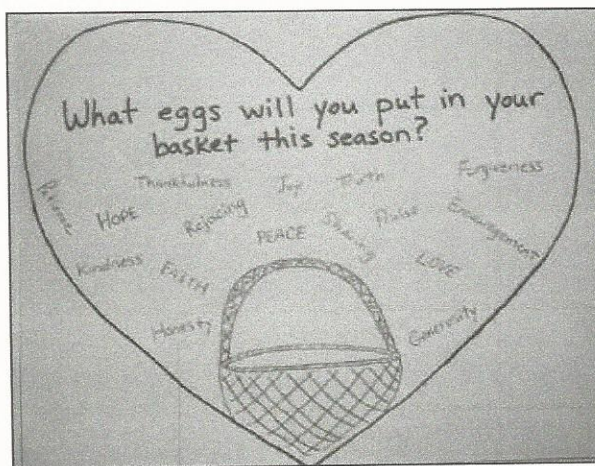 What eggs will you put in your
basket this season?
Patience Thankfulness Joy Truth Forgiveness
HOPE Rejoicing PEACE Sharing Praise Encouragement
Kindness FAITH LOVE
Honesty Generosity